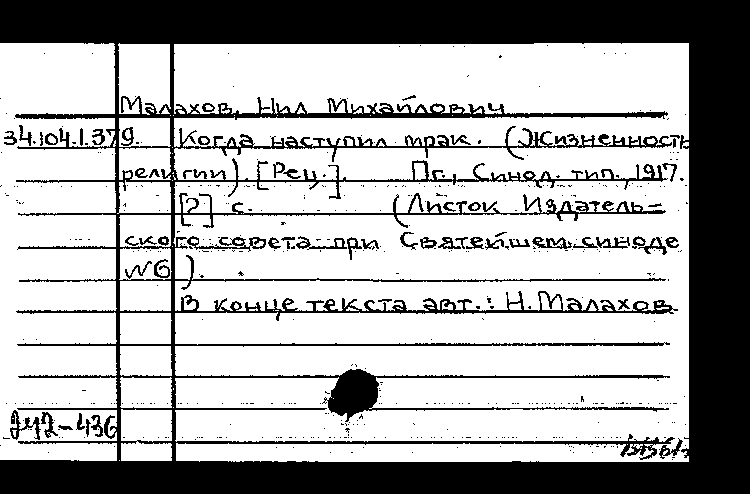 Малахов, Нил Михайлович
34.104.1.379. Когда наступил мрак. (Жизненность
религии). [Рец.]. Пг., Синод. тип., 1917.
[2] с. (Листок Издатель=
ского совета при Святейшем синоде
№6).
В конце текста авт.: Н. Малахов